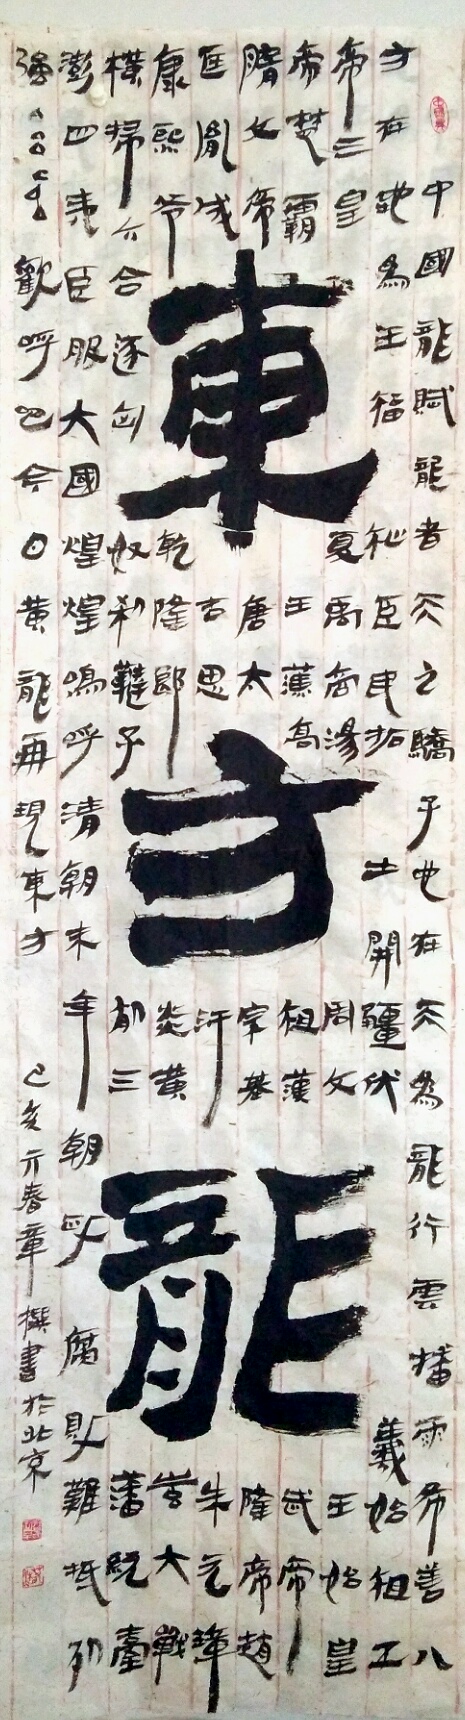 東方龍
中國龍賦龍者天之驕子也在天為龍行雲播雨布善八
方在地為王福祉臣民拓土開疆伏羲始祖工
帝三皇夏禹商湯周文王始皇
帝楚霸王漢高祖漢武帝
隋文帝唐太宗基隆帝趙
匡胤成吉思汗朱元璋
康熙爺乾隆郎炎黃大戰
橫掃六合逐匈奴刹韃子削三藩統臺
澎四夷臣服大國煌煌嗚呼清朝末年朝腐難抵列
強歡呼黃龍再現東方
己亥元春章撰書於北京